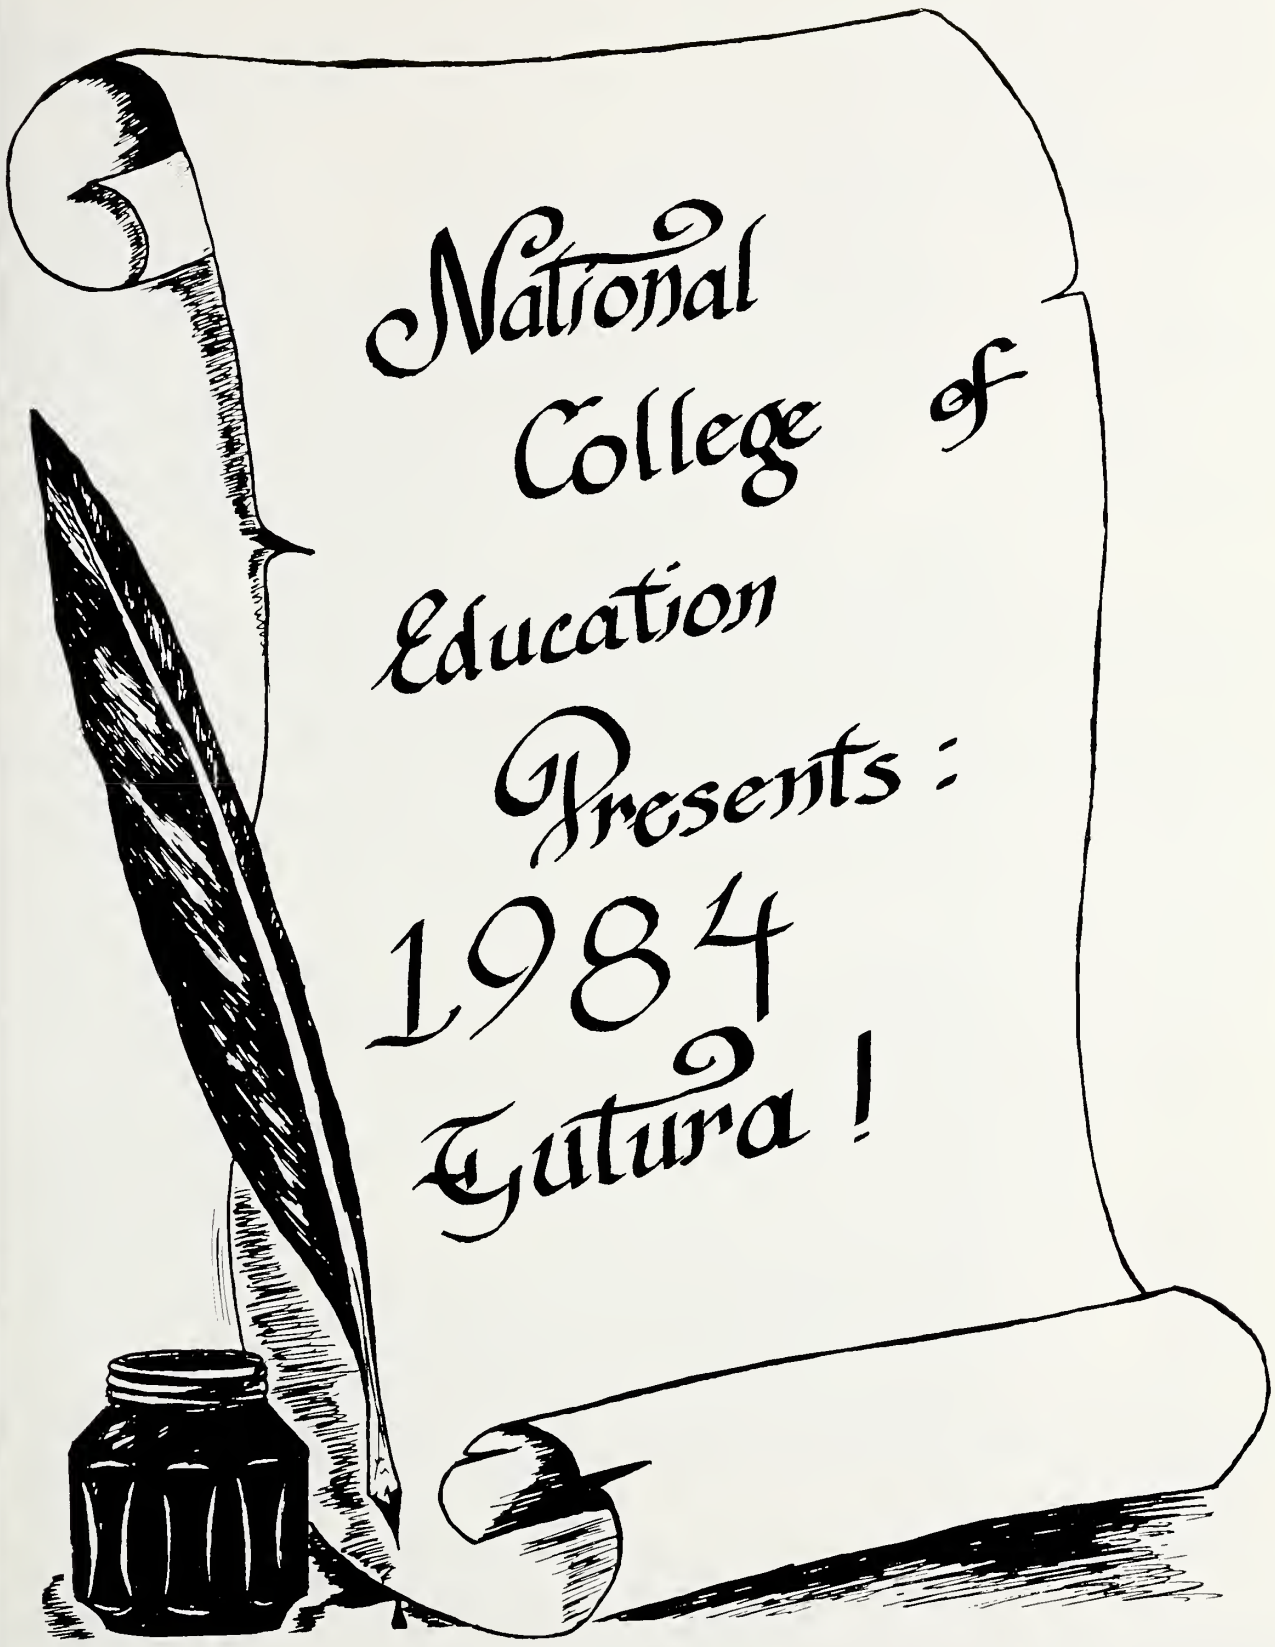 National
College of
Education
Presents :
1984
Futura !